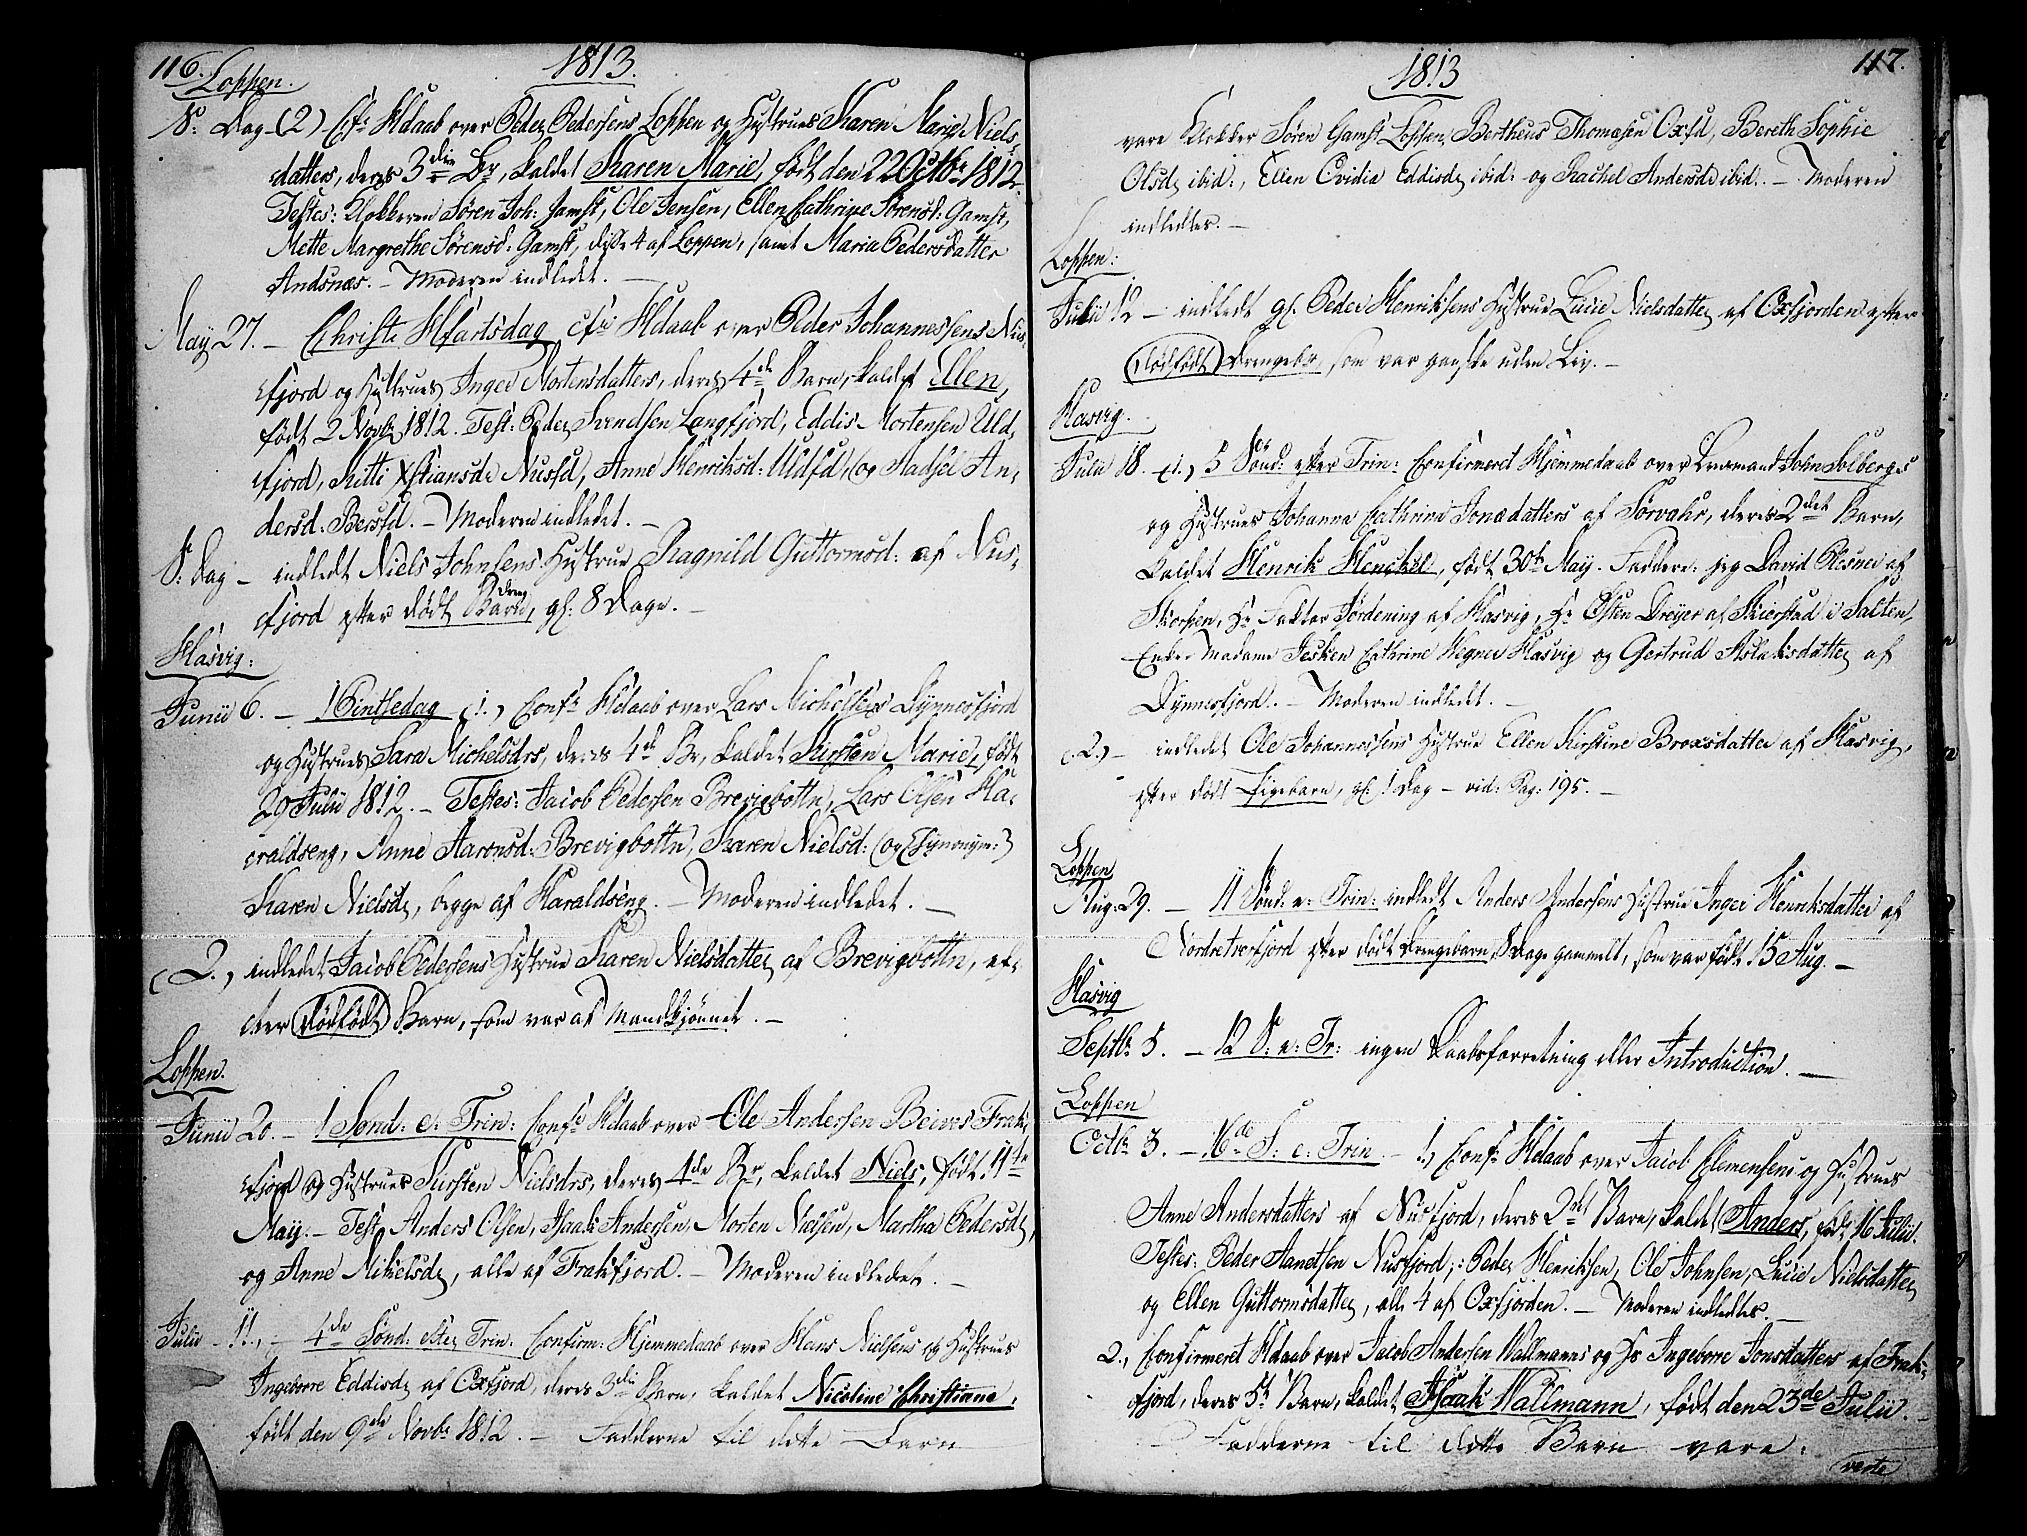 116.
Loppen.
1813.
S: Dag (2) Cfr Hdaab over Peder Pedersens Loppen og Hustrues Karen Marie Niels-
datters, deres 3die Br, kaldet Karen Marie, født den 22 Octbr 1812.
Testes: Klokkeren Søren Joh: Gamst, Ole Jensen, Ellen Cathrine Sørensd: Gamst,
Mette Margrethe Sørensd: Gamst, disse 4 af Loppen, samt Maria Pedersdatter
Andsnæs. - Moderen indledet. -
May 27. - Christi Hfartsdag cfr Hdaab over Peder Johannessens Nus-
fjord og Hustrues Inger Mortensdatters, deres 4de Barn, kaldet Ellen,
født 2 Novbr 1812. Test: Peder Svendsen Langfjord, Eddis Mortensen Uld-
fjord, Kitti Xstiansdr Nusfd, Anne Henriksd: Uldfd, og Aadsel An-
dersd: Bersfd. - Moderen indledet. -
S: Dag - indledt Niels Johnsens Hustrue Ragnild Guttormsd: af Nus-
fjord efter dødt Dreng Barn, gl: 8 Dage. -
Hasvig:
Junii 6. - 1 Pintsedag (1.) Confr Hdaab over Lars Michelsens Dynnesfjord
og Hustrues Sara Michelsdrs, deres 4de Br, kaldet Kirsten Marie, født
29 Julii 1812. - Testes: Jacob Pedersen Brevigbottn, Lars Olsen Ha-
raldseng, Anne Aaronsd: Brevigbottn, Karen Nielsd: (og Synonym:)
Karen Nielsdr, begge af Haraldseng. - Moderen indledet. -
(2.) indledet Jacob Pedersens Hustrue Karen Nielsdatter af Brevigbottn, ef-
ter dødfødt Barn, som var af Mandkjønnet. -
Loppen.
Junii 20. - 1 Sønd: e: Trin: Confr Hdaab over Ole Andersen Beives Frak-
fjord og Hustrues Kirsten Nielsdrs, deres 4de Br, kaldet Niels, født 11te
May. - Test: Anders Olsen, Isaak Andersen, Morten Nielsen, Martha Pedersdr,
og Anne Mikelsdr, alle af Frakfjord. - Moderen indledet. -
Julii 11. - 4de Sønd: efter Trin: Confirm: Hjemmedaab over Hans Nielsens og Hustrues
Ingeborre Eddisdr af Oxfjord, deres 3die Barn, kaldet Nicoline Christianna,
født den 9de Novbr 1812. - Fadderne til dette Barn
1813
117.
vare Klokker Søren Gamst Loppen, Bertheus Thomæsen Oxfd, Bereth Sophie
Olsdr ibid:, Ellen Ovidia Eddisdr ibid: og Rachel Andersdr ibid. - Moderen
indledtes. -
Loppen:
Julii 12 - indledt gl. Peder Henriksens Hustrue Lucie Nielsdatter af Oxfjorden efter
dødfødt Drengebr, som var ganske uden Liv. -
Hasvig.
Julii 18. (1.) 5 Sønd: efter Trin: Confirmeret Hjemmedaab over Lensmand John Solbergs
og Hustrues Johanna Cathrina Jonædatters af Sørvahr, deres 2det Barn,
kaldet Henrik Henckel, født 30te May. Faddere: jeg David Resner af
Skorpen, Hr Factor Fordening af Hasvig, Hr Osten Dreyer af Skierstad i Salten,
Enke Madame Jesken Cathrine Wegner Hasvig og Gertrud Aslaksdatter af
Dynnesfjord. - Moderen indledet. -
(2.) - indledet Ole Johannessens Hustrue Ellen Kirstine Broxsdatter af Hasvig,
efter dødt Pigebarn, gl: 1 Dag - vid: Pag: 195. -
Loppen
Aug: 29. - 11 Sønd: e: Trin: indledt Anders Andersens Hustrue Inger Henriksdatter af
Nordretverfjord efter dødt Drengebarn, 8 Dage gammelt, som var født 15 Aug. -
Hasvig
Septbr 5. - 12 S: e: Tr: ingen Daabsforretning eller Introduction. -
Loppen
Octbr 3. - 16de S: e: Trin. - 1, Confr Hdaab over Jacob Clemensens og Hustrues
Anne Andersdatters af Nusfjord, deres 2det Barn, kaldet Anders, født 16 Julii.
Testes: Peder Aanetsen Nusfjord; Peder Henriksen, Ole Johnsen, Lucie Nielsdatter
og Ellen Guttormsdatter, alle 4 af Oxfjorden. - Moderen indledtes. -
2, Confirmeret Hdaab over Jacob Andersen Wallmanns og Hs Ingeborre Jonsdatters af Frak-
fjord, deres 5te Barn, kaldet Isaak Wallmann, født den 23de Julii. -
- Fadderne til dette Barn vare:
verte